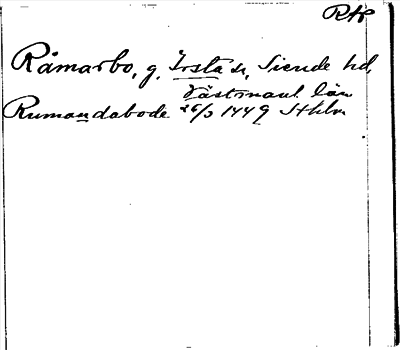 RAP
Råmarbo, g, Irsta sn, Siende hd,
Västmanl. län
Rumandabode 26/3 1449 Sthlm